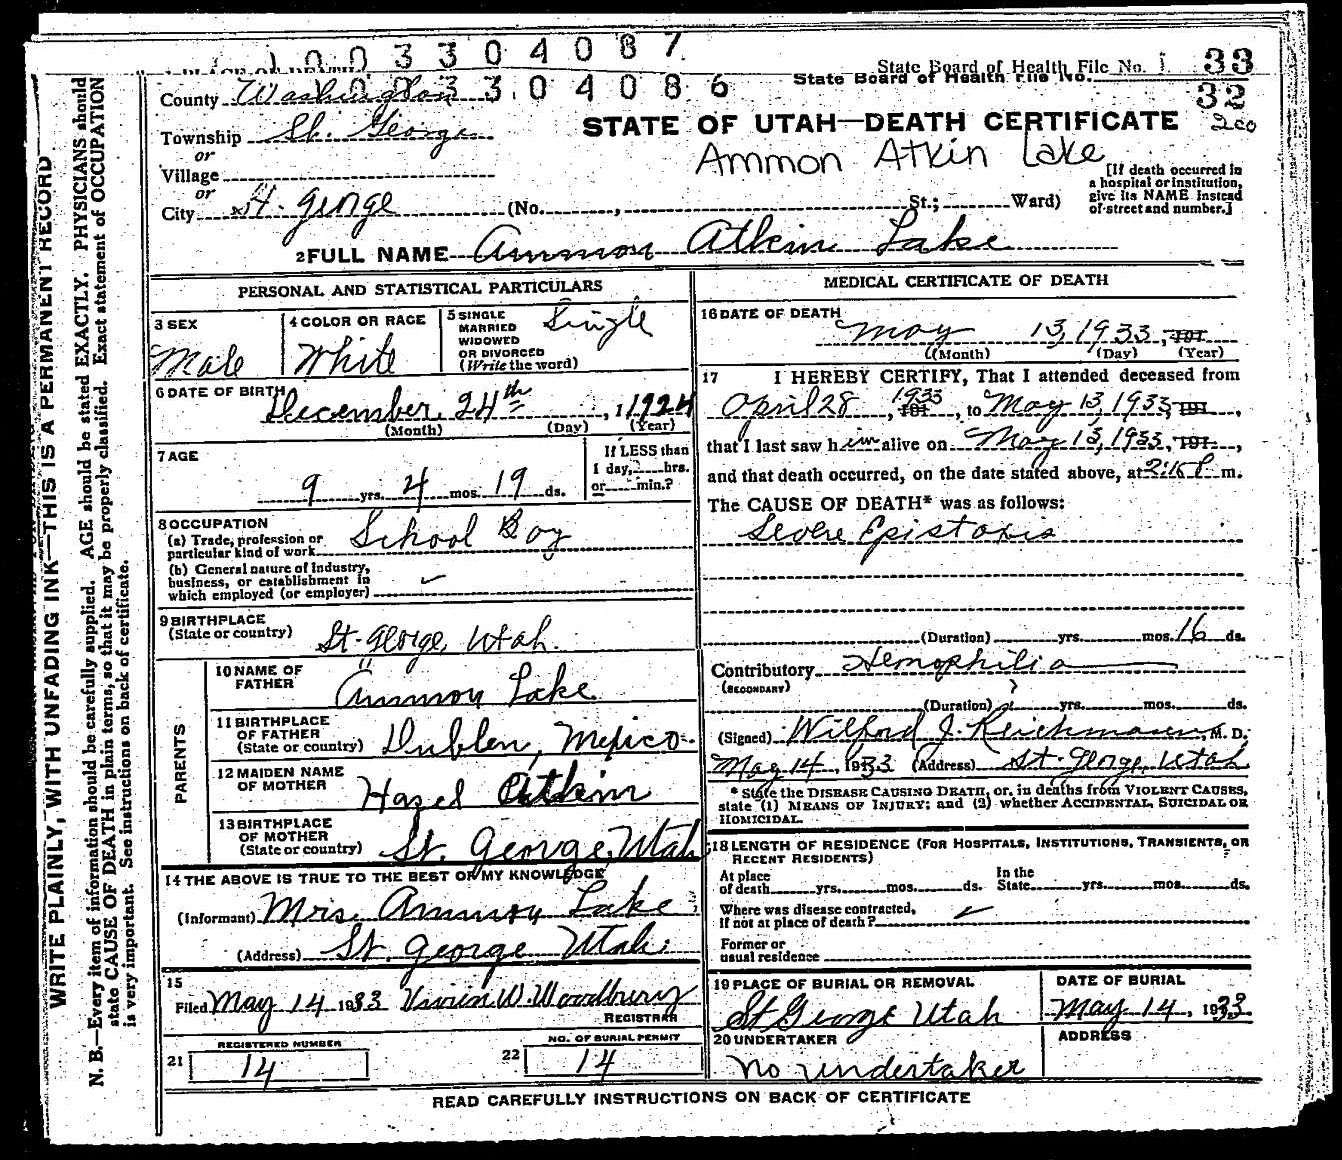 1003304087
State Board of Health File No. 33
1003304086
State Board of Health File No. 32
County Washington
200
STATE OF UTAH—DEATH CERTIFICATE
Township St. George
Ammon Atkin Lake
or
Village
or
City St. George (No. , St.; Ward)
[If death occurred in
a hospital or institution,
give its NAME instead
of street and number.]
2 FULL NAME Ammon Atkin Lake
PERSONAL AND STATISTICAL PARTICULARS
3 SEX
Male
4 COLOR OR RACE
White
5 SINGLE
MARRIED
WIDOWED
OR DIVORCED
(Write the word)
Single
6 DATE OF BIRTH
December 24th, 1924
(Month) (Day) (Year)
7 AGE
9 yrs. 4 mos. 19 ds.
If LESS than
1 day, hrs.
or min.?
8 OCCUPATION
(a) Trade, profession or
particular kind of work School Boy
(b) General nature of industry,
business, or establishment in
which employed (or employer)
9 BIRTHPLACE
(State or country) St. George, Utah.
PARENTS
10 NAME OF
FATHER Ammon Lake
11 BIRTHPLACE
OF FATHER
(State or country) Dublen, Mexico.
12 MAIDEN NAME
OF MOTHER Hazel Atkin
13 BIRTHPLACE
OF MOTHER
(State or country) St. George, Utah
14 THE ABOVE IS TRUE TO THE BEST OF MY KNOWLEDGE
(Informant) Mrs. Ammon Lake
(Address) St. George Utah.
15
Filed May 14 1933 Vivien W. Woodbury
REGISTRAR
21 REGISTERED NUMBER
14
22 NO. OF BURIAL PERMIT
14
MEDICAL CERTIFICATE OF DEATH
16 DATE OF DEATH
May 13, 1933, 191
(Month) (Day) (Year)
17 I HEREBY CERTIFY, That I attended deceased from
April 28, 1933 191, to May 13, 1933, 191,
that I last saw him alive on May 13, 1933, 191,
and that death occurred, on the date stated above, at P m.
The CAUSE OF DEATH* was as follows:
Severe Epistaxis
(Duration) yrs. mos. 16 ds.
Contributory Hemophilia
(SECONDARY)
(Duration) ? yrs. mos. ds.
(Signed) Wilford J. Reichmann, M. D.
May 14, 1933 (Address) St. George, Utah
* State the DISEASE CAUSING DEATH, or, in deaths from VIOLENT CAUSES,
state (1) MEANS OF INJURY; and (2) whether ACCIDENTAL, SUICIDAL OR
HOMICIDAL.
18 LENGTH OF RESIDENCE (FOR HOSPITALS, INSTITUTIONS, TRANSIENTS, OR
RECENT RESIDENTS)
At place
of death yrs. mos. ds. In the
State yrs. mos. ds.
Where was disease contracted,
if not at place of death?
Former or
usual residence
19 PLACE OF BURIAL OR REMOVAL
St George Utah
DATE OF BURIAL
May 14, 1933
20 UNDERTAKER
No undertaker
ADDRESS
READ CAREFULLY INSTRUCTIONS ON BACK OF CERTIFICATE
WRITE PLAINLY, WITH UNFADING INK—THIS IS A PERMANENT RECORD
N. B.—Every item of information should be carefully supplied. AGE should be stated EXACTLY. PHYSICIANS should
state CAUSE OF DEATH in plain terms, so that it may be properly classified. Exact statement of OCCUPATION
is very important. See instructions on back of certificate.